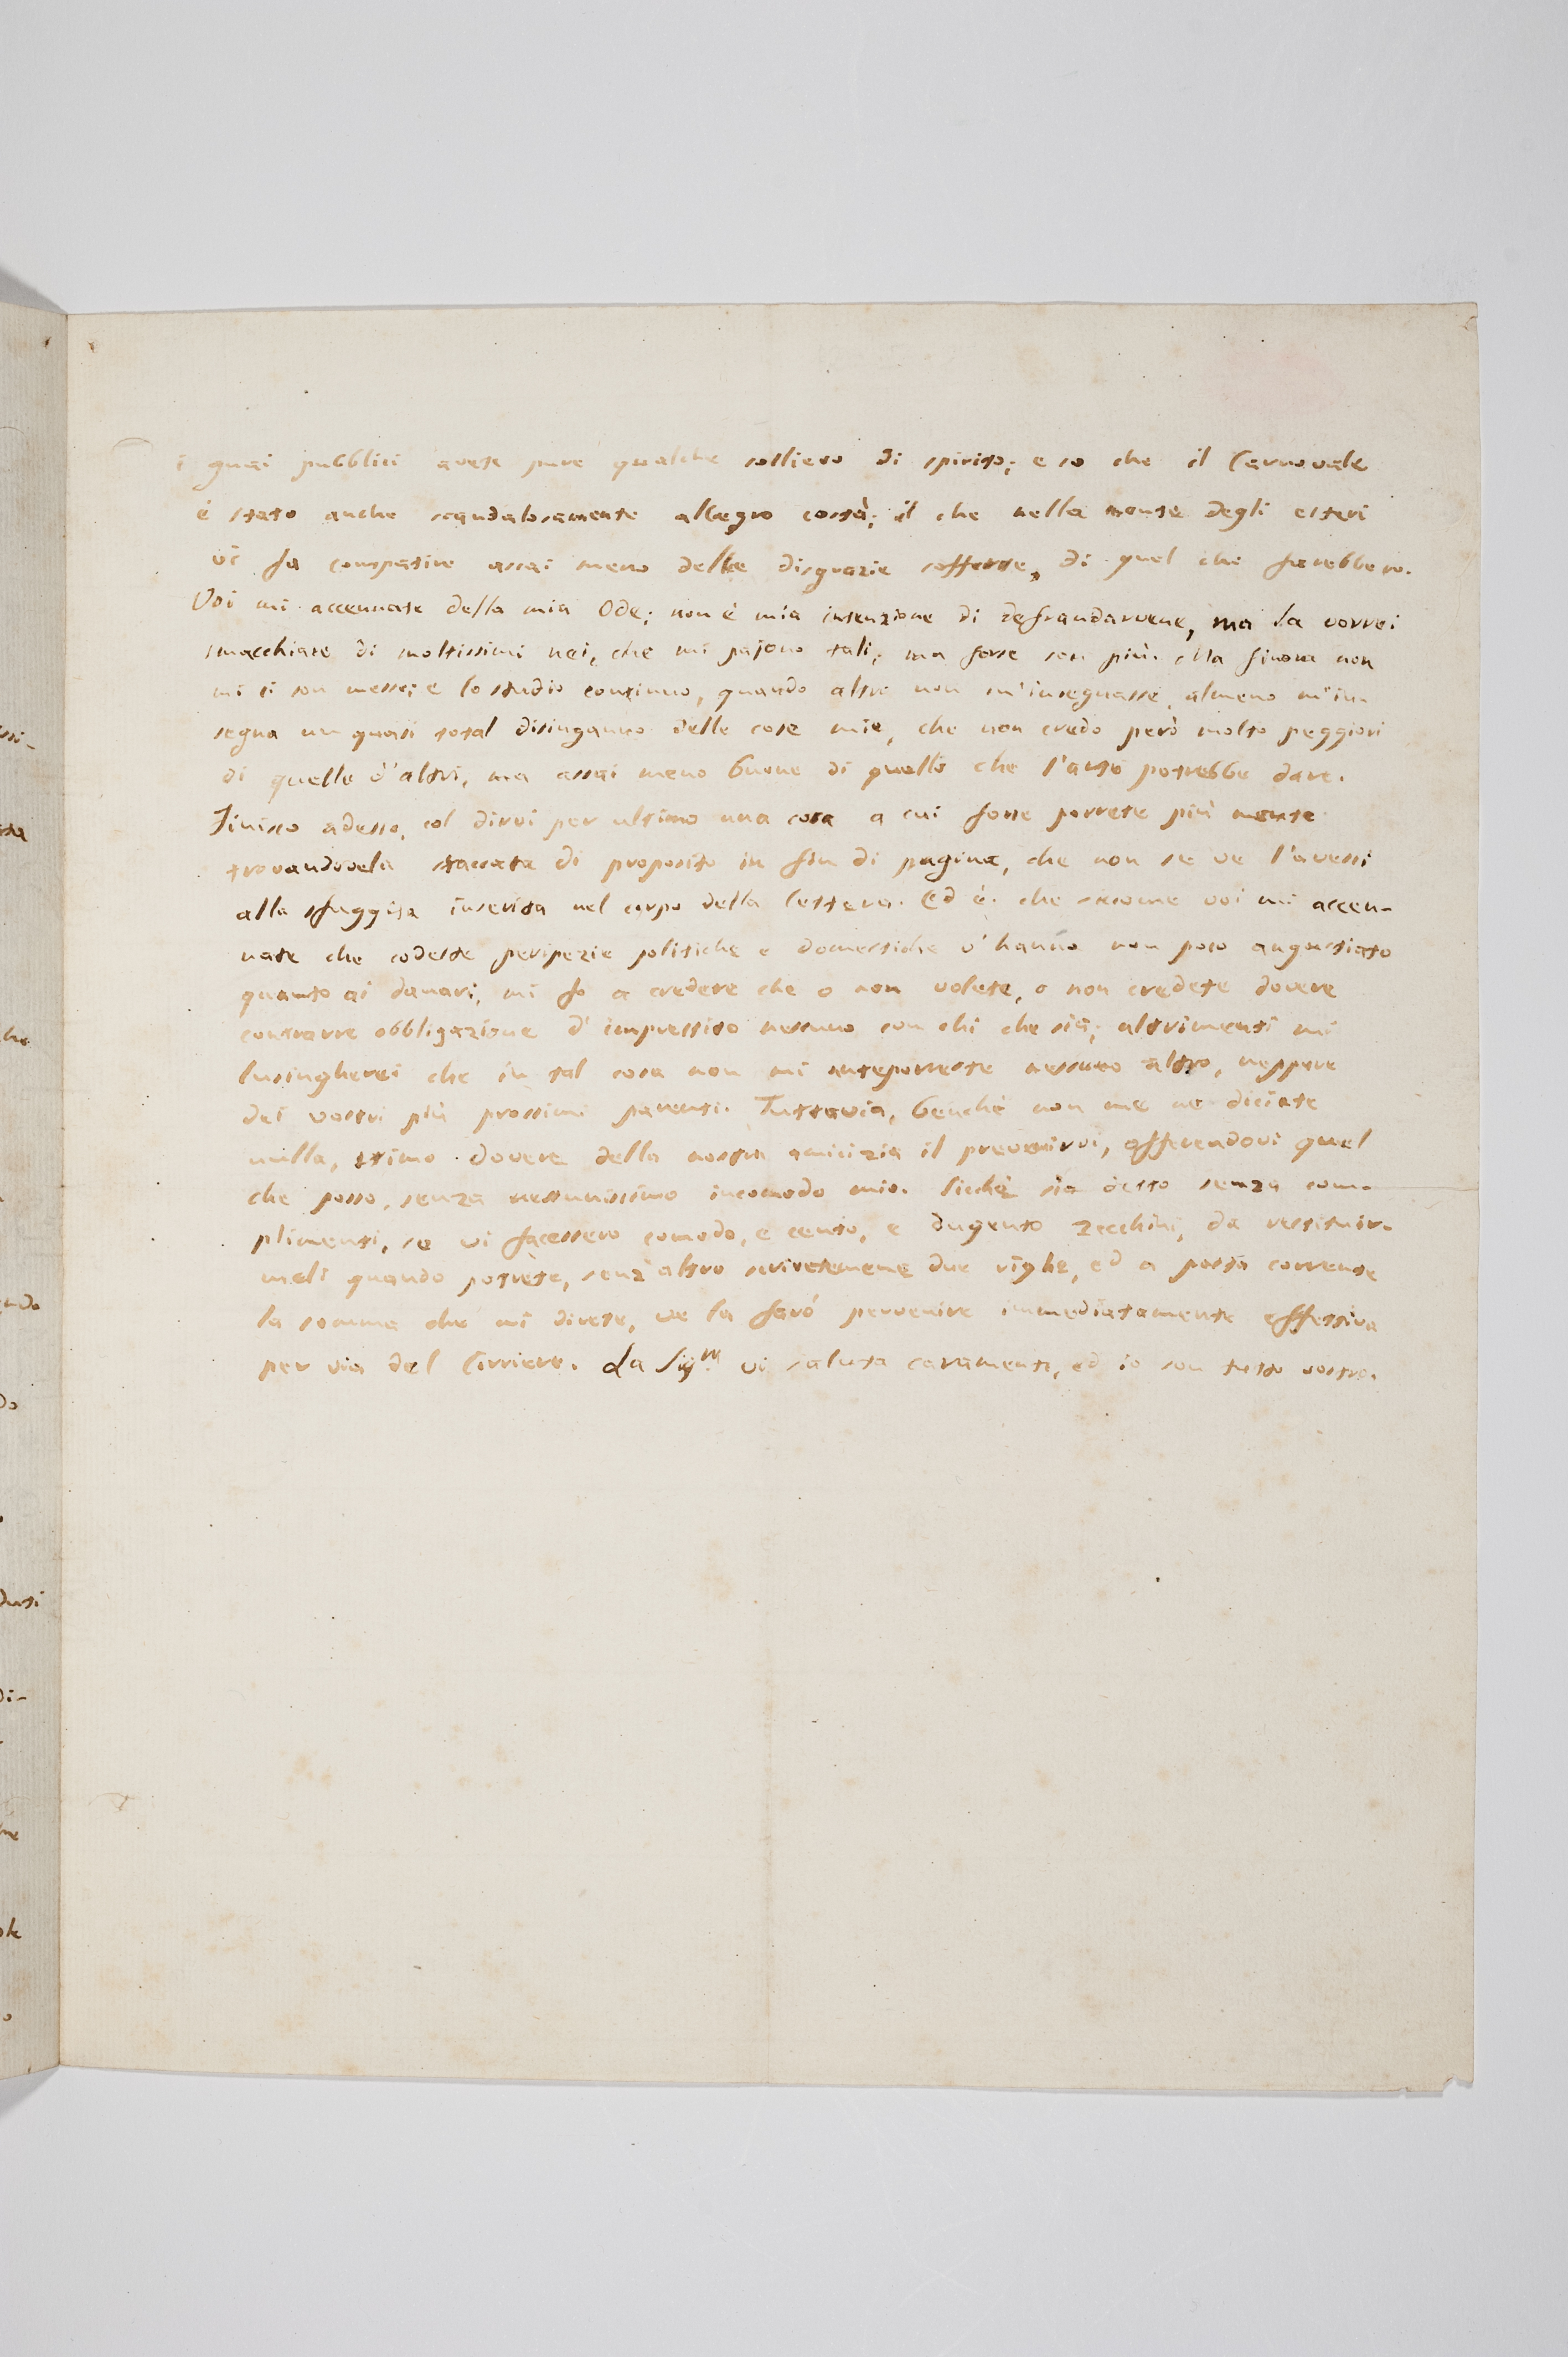 i guai pubblici avete pure qualche sollievo di spirito; e so che il Carnovale
è stato anche scandalosamente allegro costà; il che nella mente degli esteri
vi fa compatire assai meno delle disgrazie sofferte, di quel che farebbero.
Voi mi accennate della mia Ode; non è mia intenzione di defraudarvene, ma la vorrei
smacchiare di moltissimi nei, che mi pajono tali, ma forse son più. Ma finora non
mi ci son messo; e lo studio continuo, quando altro non m'insegnasse, almeno m'in-
segna un quasi total disinganno delle cose mie, che non credo però molto peggiori
di quelle d'altri, ma assai meno buone di quello che l'arte potrebbe dare.
Finisco adesso, col dirvi per ultimo una cosa a cui forse porrete più mente
trovandovela staccata di proposito in fin di pagina, che non se ve l'avessi
alla sfuggita inserita nel corpo della lettera. Ed è: che siccome voi mi accen-
nate che codeste peripezie politiche e domestiche v'hanno non poco angustiato
quanto ai danari, mi fo a credere che o non volete, o non credete dovere
contrarre obbligazione d'imprestito nessuno con chi che sia; altrimenti mi
lusingherei che in tal cosa non mi anteporreste nessuno altro, neppure
dei vostri più prossimi parenti. Tuttavia, benchè non me ne diciate
nulla, stimo dovere della nostra amicizia il prevenirvi, offerendovi quel
che posso, senza nessunissimo incomodo mio. Sicchè sia detto senza com-
plimenti, se vi facessero comodo, e cento, e dugento zecchini, da restituir-
meli quando potrete, senz'altro scrivetemene due righe, ed a posta corrente
la somma che mi direte, ve la farò pervenire immediatamente effettiva
per via del Corriere. La Sig.ra vi saluta caramente, ed io son tutto vostro.